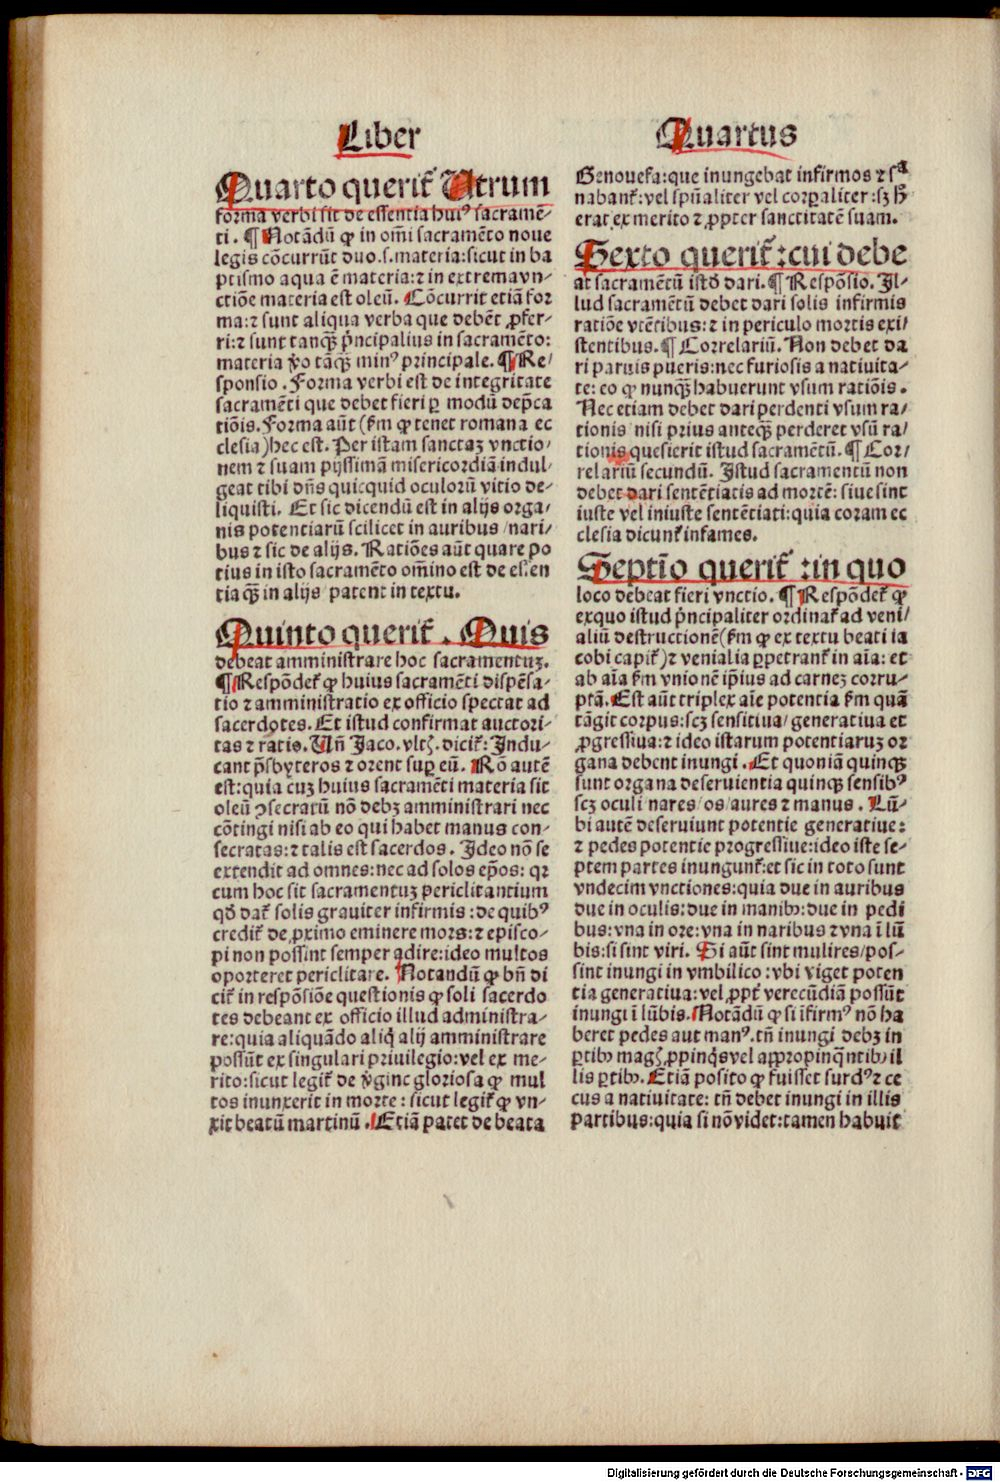 Liber
Quarto querit᷑ Utrum
forma verbi sit de essentia huiꝰ sacramē-
ti. ¶ Notādū ꝙ in om̄i sacramēto noue
legis cōcurrūt duo.s.materia:sicut in ba
ptismo aqua ē materia:⁊ in extremavn-
ctiōe materia est oleū. Cōcurrit etiā for
ma:⁊ sunt aliqua verba que debēt ꝓfer-
ri:⁊ sunt tanqꝫ p̄ncipalius in sacramēto:
materia v̄o tāqꝫ minꝰ principale. ¶ Re/
sponsio. Forma verbi est de integritate
sacramēti que debet fieri ꝑ modū dep̄ca
tiōis. Forma aūt (ẜm ꝙ tenet romana ec
clesia) hec est. Per istam sanctaꝫ vnctio/
nem ⁊ suam pijssimā misericordiā indul/
geat tibi dn̄s quicquid oculorū vitio de-
liquisti. Et sic dicendū est in alijs orga/
nis potentiarū scilicet in auribus/nari/
bus ⁊ sic de alijs. Ratiōes aūt quare po
tius in isto sacramēto om̄ino est de essen
tia qꝫ in alijs/patent in textu.
Quinto querit᷑. Quis
debeat amministrare hoc sacramentuꝫ.
¶ Respōdet᷑ ꝙ huius sacramēti dispēsa/
tio ⁊ amministratio ex officio spectat ad
sacerdotes. Et istud confirmat auctori-
tas ⁊ ratio. Un̄ Jaco. vltꝭ. dicit᷑: Indu/
cant p̄sbyteros ⁊ orent suꝑ eū. Rō autē
est:quia cuꝫ huius sacramēti materia sit
oleū ꝯsecratū nō debꝫ amministrari nec
cōtingi nisi ab eo qui habet manus con/
secratas:⁊ talis est sacerdos. Ideo nō se
extendit ad omnes:nec ad solos ep̄os: qꝛ
cum hoc sit sacramentuꝫ periclitantium
qd̄ dat᷑ solis grauiter infirmis:de quibꝰ
credit᷑ de ꝓximo eminere mors:⁊ episco/
pi non possint semper adire:ideo multos
oporteret periclitare. Notandū ꝙ bn̄ di
cit᷑ in respōsiōe questionis ꝙ soli sacerdo
tes debeant ex officio illud administra/
re:quia aliquādo aliqͥ alij amministrare
possūt ex singulari priuilegio:vel ex me/
rito:sicut legit᷑ de v̄gine gloriosa ꝙ mul
tos inunxerit in morte: sicut legit᷑ ꝙ vn/
xit beatū martinū. Etiā patet de beata
Quartus
Genouefa:que inungebat infirmos ⁊ sᵃ
nabant᷑:vel spūaliter vel corꝑaliter:sꝫ h̄
erat ex merito ⁊ ꝓpter sanctitatē suam.
Sexto querit᷑:cui debe
at sacramētū istd̄ dari. ¶ Respōsio. Il-
lud sacramētū debet dari solis infirmis
ratiōe vtētibus:⁊ in periculo mortis exi/
stentibus. ¶ Correlariū. Non debet da
ri paruis pueris:nec furiosis a natiuita-
te: eo ꝙ nunqꝫ habuerunt vsum ratiōis.
Nec etiam debet dari perdenti vsum ra/
tionis nisi prius anteqꝫ perderet vsū ra/
tionis quesierit istud sacramētū. ¶ Cor/
relariū secundū. Istud sacramentū non
debet dari sentētiatis ad mortē: siue sint
iuste vel iniuste sentētiati:quia coram ec
clesia dicunt᷑ infames.
Septīo querit᷑ :in quo
loco debeat fieri vnctio. ¶ Respōdet᷑ ꝙ
exquo istud p̄ncipaliter ordinat᷑ ad veni/
aliū destructionē (ẜm ꝙ ex textu beati ia
cobi capit᷑) ⁊ venialia ꝑpetrant᷑ in aīa: et
ab aīa ẜm vnionē ip̄ius ad carneꝫ corru/
ptā. Est aūt triplex aīe potentia ẜm quā
tāgit corpus:scꝫ sensitiua/generatiua et
ꝓgressiua:⁊ ideo istarum potentiaruꝫ or
gana debent inungi. Et quoniā quinqꝫ
sunt organa deseruientia quinqꝫ sensibꝰ
scꝫ oculi/nares/os/aures ⁊ manus. Lū-
bi autē deseruiunt potentie generatiue:
⁊ pedes potentie progressiue:ideo iste se/
ptem partes inungunt᷑:et sic in toto sunt
vndecim vnctiones:quia due in auribus
due in oculis:due in manibꝫ:due in pedi
bus:vna in ore:vna in naribus ⁊ vna ī lū
bis:si sint viri. Si aūt sint mulires/pos-
sint inungi in vmbilico:vbi viget poten
tia generatiua:vel ꝓpt᷑ verecūdiā possūt
inungi ī lūbis. Notādū ꝙ si īfirmꝰ nō ha
beret pedes aut manꝰ. tn̄ inungi debꝫ in
ꝑtibꝫ magꝭ ꝓpinqͥs vel appropinqͣntibꝫ il
lis ꝑtibꝫ. Etiā posito ꝙ fuisset surdꝰ ⁊ ce
cus a natiuitate: tn̄ debet inungi in illis
partibus:quia si nō videt:tamen habuit
Digitalisierung gefördert durch die Deutsche Forschungsgemeinschaft - DFG